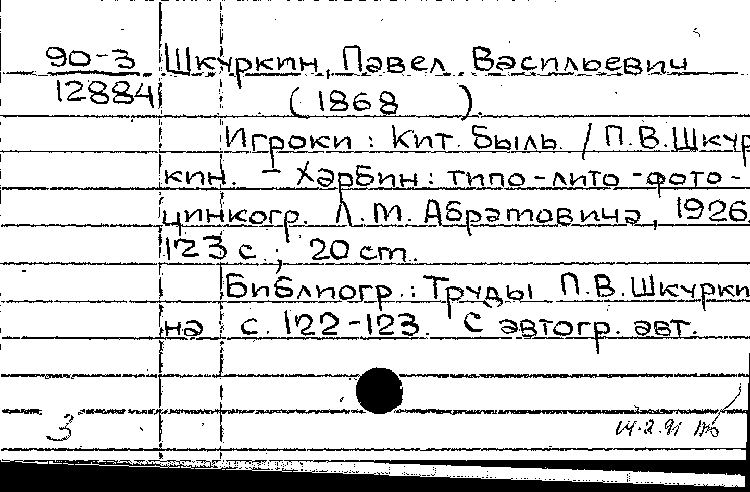 90-3 Шкуркин, Павел Васильевич
12884 (1868 ).
Игроки : Кит. быль / П.В.Шкур
кин. - Харбин : типо-лито-фото-
цинкогр. Л.М. Абрамовича, 1926
123 с. ; 20 cm.
Библиогр.: Труды П.В.Шкурки
на с. 122-123. С автогр. авт.
3 14.2.91